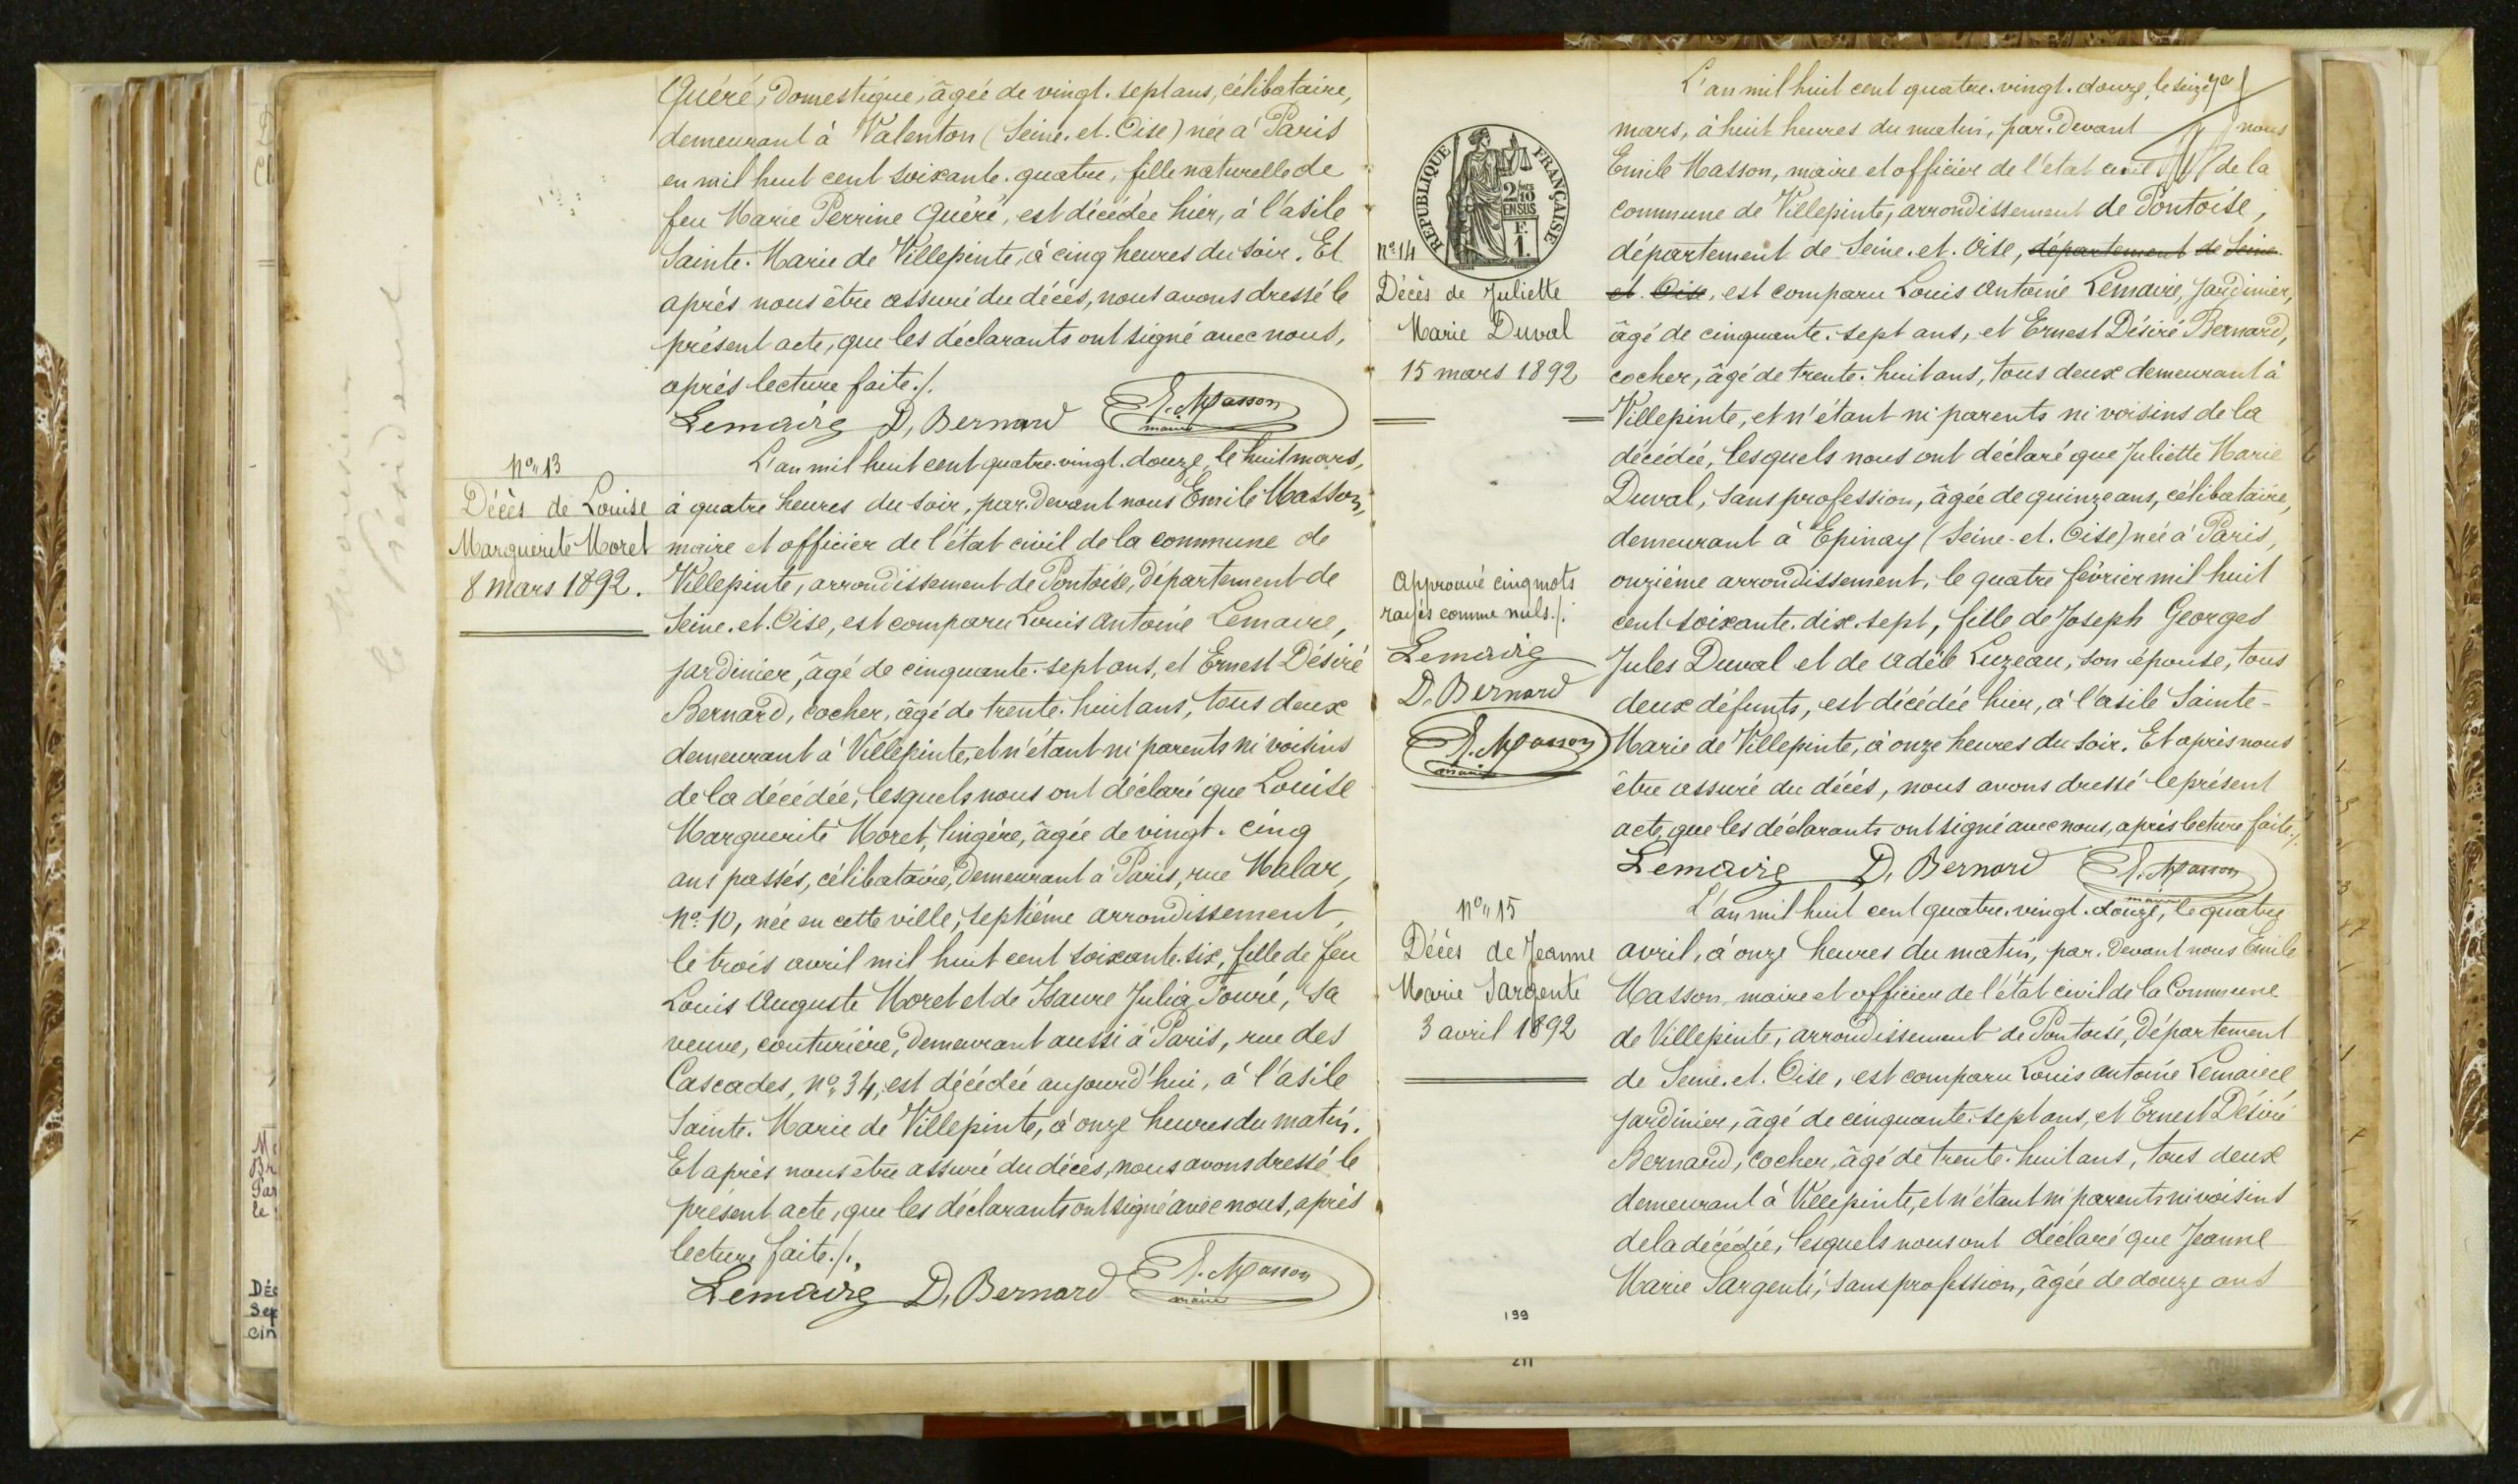 Quéré, domestique, âgée de vingt-sept ans, célibataire,
demeurant à Valenton (Seine-et-Oise) née à Paris
en mil huit cent soixante-quatre, fille naturelle de
feu Marie Perrine Quéré, est décédée hier, à l'asile
Sainte-Marie de Villepinte, à cinq heures du soir. Et
après nous être assuré du décès, nous avons dressé le
présent acte, que les déclarants ont signé avec nous,
après lecture faite./.
Lemaire D, Bernard E. Masson
maire
No 13
Décès de Louise
Marguerite Moret
8 mars 1892.
L'an mil huit cent quatre-vingt-douze, le huit mars,
à quatre heures du soir, par-devant nous Emile Masson,
maire et officier de l'état civil de la commune de
Villepinte, arrondissement de Pontoise, département de
Seine-et-Oise, est comparu Louis Antoine Lemaire,
jardinier, âgé de cinquante-sept ans, et Ernest Désiré
Bernard, cocher, âgé de trente-huit ans, tous deux
demeurant à Villepinte, et n'étant ni parents ni voisins
de la décédée, lesquels nous ont déclaré que Louise
Marguerite Moret, lingère, âgée de vingt-cinq
ans passés, célibataire, demeurant à Paris, rue Malar,
No 10, née en cette ville, septième arrondissement,
le trois avril mil huit cent soixante-six, fille de feu
Louis Auguste Moret et de Isaure Julia Touré, sa
veuve, couturière, demeurant aussi à Paris, rue des
Cascades, no 34, est décédée aujourd'hui, à l'asile
Sainte-Marie de Villepinte, à onze heures du matin.
Et après nous être assuré du décès, nous avons dressé le
présent acte, que les déclarants ont signé avec nous, après
lecture faite./.
Lemaire D, Bernard E. Masson
maire
RÉPUBLIQUE FRANÇAISE
2/10 EN SUS
F. 1.
No 14
Décès de Juliette
Marie Duval
15 mars 1892
L'an mil huit cent quatre-vingt-douze, le seize
mars, à huit heures du matin, par-devant nous
Emile Masson, maire et officier de l'état civil de la
commune de Villepinte, arrondissement de Pontoise,
département de Seine-et-Oise, département de Seine-
et-Oise, est comparu Louis Antoine Lemaire, jardinier,
âgé de cinquante-sept ans, et Ernest Désiré Bernard,
cocher, âgé de trente-huit ans, tous deux demeurant à
Villepinte, et n'étant ni parents ni voisins de la
décédée, lesquels nous ont déclaré que Juliette Marie
Duval, sans profession, âgée de quinze ans, célibataire,
demeurant à Epinay (Seine-et-Oise) née à Paris,
onzième arrondissement, le quatre février mil huit
cent soixante-dix-sept, fille de Joseph Georges
Jules Duval et de Adèle Luzeau, son épouse, tous
deux défunts, est décédée hier, à l'asile Sainte-
Marie de Villepinte, à onze heures du soir. Et après nous
être assuré du décès, nous avons dressé le présent
acte, que les déclarants ont signé avec nous, après lecture faite./.
Lemaire D, Bernard E. Masson
maire
Approuvé cinq mots
rayés comme nuls./.
Lemaire
D, Bernard
E. Masson
maire
No 15
Décès de Jeanne
Marie Sargente
3 avril 1892
L'an mil huit cent quatre-vingt-douze, le quatre
avril, à onze heures du matin, par-devant nous Emile
Masson, maire et officier de l'état civil de la Commune
de Villepinte, arrondissement de Pontoise, Département
de Seine-et-Oise, est comparu Louis Antoine Lemaire
jardinier, âgé de cinquante-sept ans, et Ernest Désiré
Bernard, cocher, âgé de trente-huit ans, tous deux
demeurant à Villepinte, et n'étant ni parents ni voisins
de la décédée, lesquels nous ont déclaré que Jeanne
Marie Sargente, sans profession, âgée de douze ans
199
211